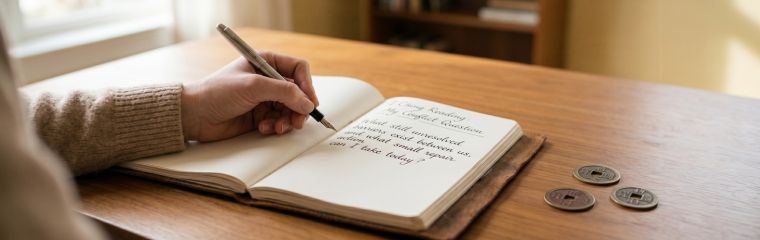 I Ching Reading
My Conflict Question
What still unresolved
barriers exist between us,
and what small repair
action can I take today?